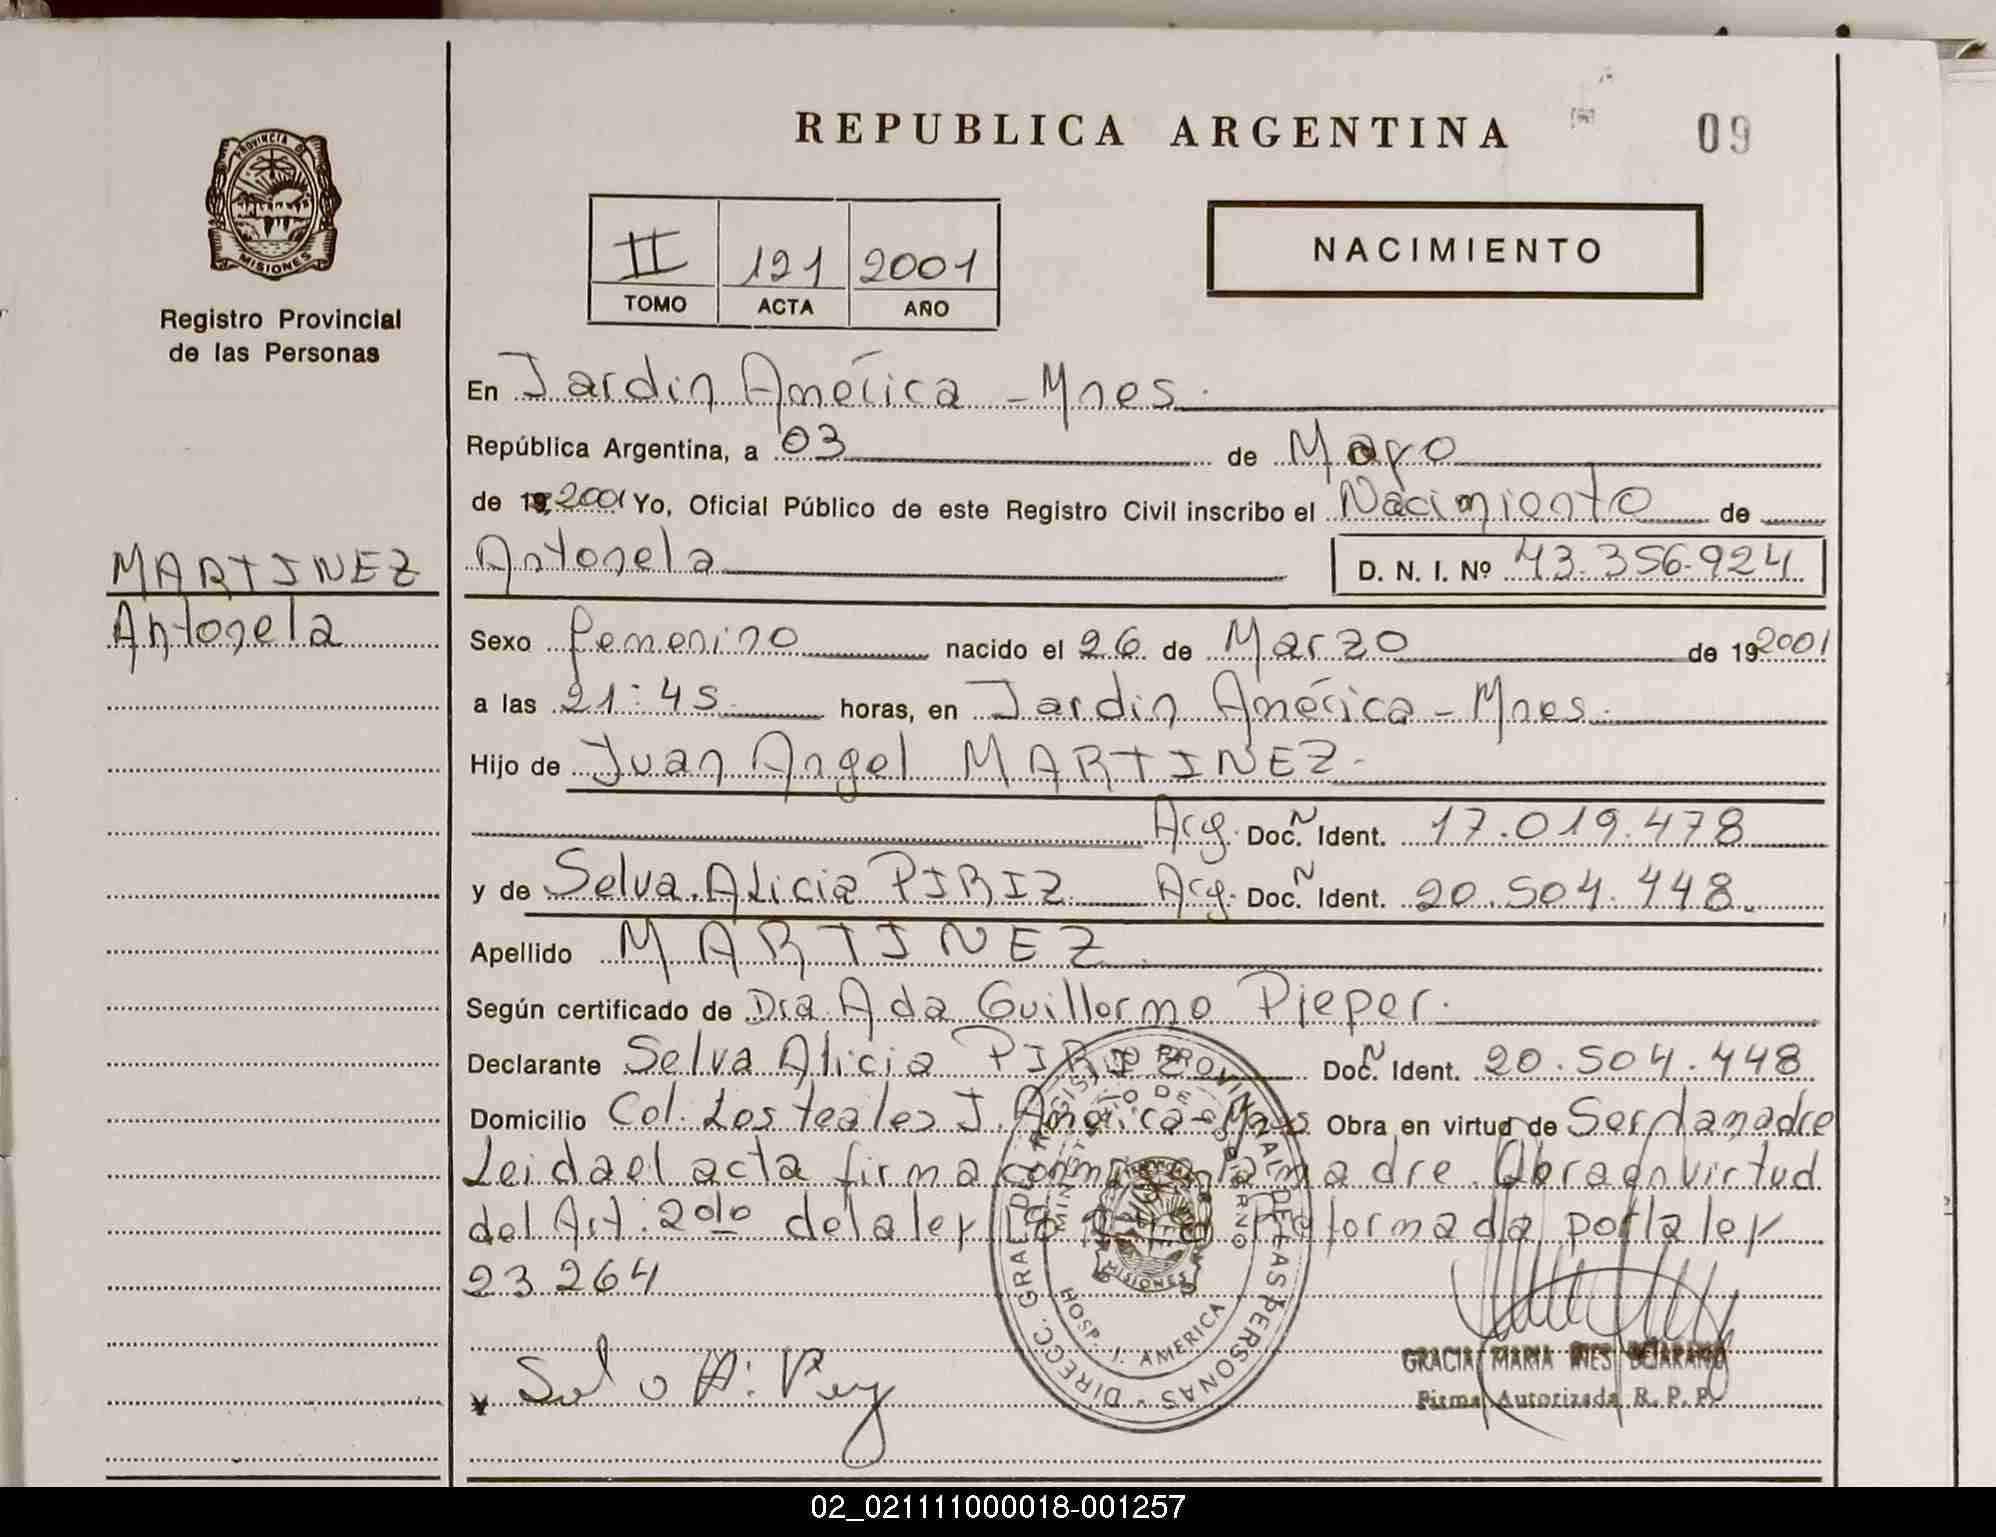 REPUBLICA ARGENTINA
09
PROVINCIA DE
MISIONES
Registro Provincial
de las Personas
II 121 2001
TOMO ACTA AÑO
NACIMIENTO
En Jardin América - Mnes.
República Argentina, a 03 de Mayo
de 19 2001 Yo, Oficial Público de este Registro Civil inscribo el Nacimiento de
MARTINEZ
Antonela
Antonela D. N. I. Nº 43.356.924
Sexo femenino nacido el 26 de Marzo de 19 2001
a las 21:45 horas, en Jardin América - Mnes.
Hijo de Juan Angel MARTINEZ-
Arg. Doc. N Ident. 17.019.478
y de Selva Alicia PIRIZ Arg. Doc. N Ident. 20.504.448.
Apellido MARTINEZ
Según certificado de Dra Ada Guillermo Pieper.
Declarante Selva Alicia PIRIZ Doc. N Ident. 20.504.448
Domicilio Col. Los teales J. América - Mnes Obra en virtud de Ser la madre
Leida el acta firma conmigo la madre. Obra en virtud
del Art: 2do de la ley reformada por la ley
23 264
DIRECC. GRAL. DEL REGISTRO PROVINCIAL DE LAS PERSONAS
MINISTERIO DE GOBIERNO
MISIONES
HOSP. J. AMERICA
GRACIA MARIA INES BEJARANO
Firma Autorizada R. P. P.
02_021111000018-001257